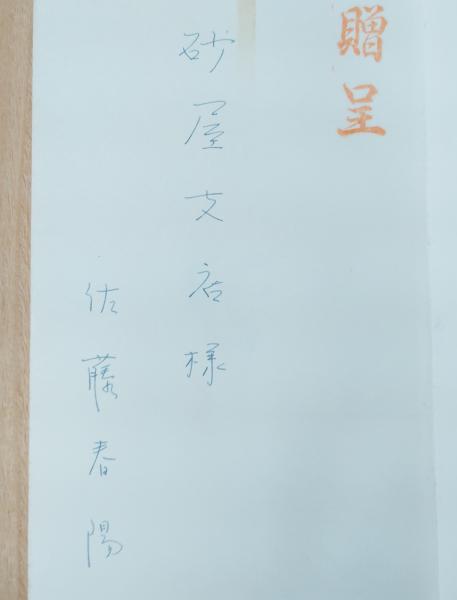 贈呈
砂屋支店様
佐藤春陽